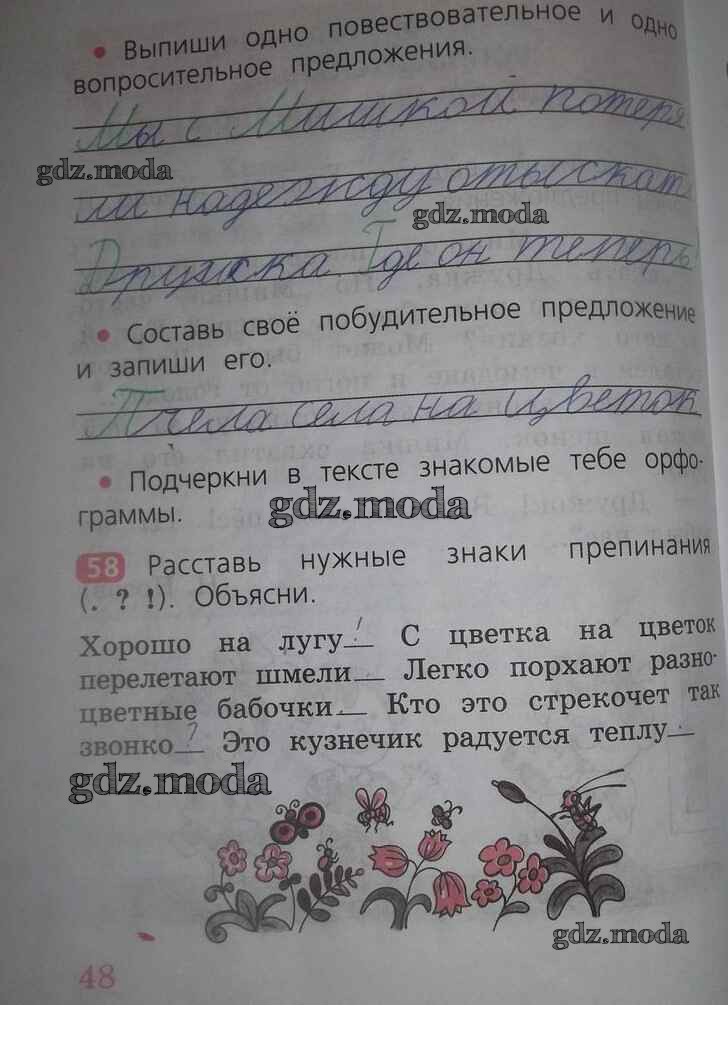 • Выпиши одно повествовательное и одно
вопросительное предложения.
Мы с Мишкой потеря
gdz.moda
ли надежду отыскат
gdz.moda
Дружка. Где он теперь
• Составь своё побудительное предложение
и запиши его.
Пчела села на цветок
• Подчеркни в тексте знакомые тебе орфо-
gdz.moda
граммы.
58 Расставь нужные знаки препинания
(. ? !). Объясни.
Хорошо на лугу ! С цветка на цветок
перелетают шмели . Легко порхают разно-
цветные бабочки . Кто это стрекочет так
звонко ? Это кузнечик радуется теплу .
gdz.moda
gdz.moda
48